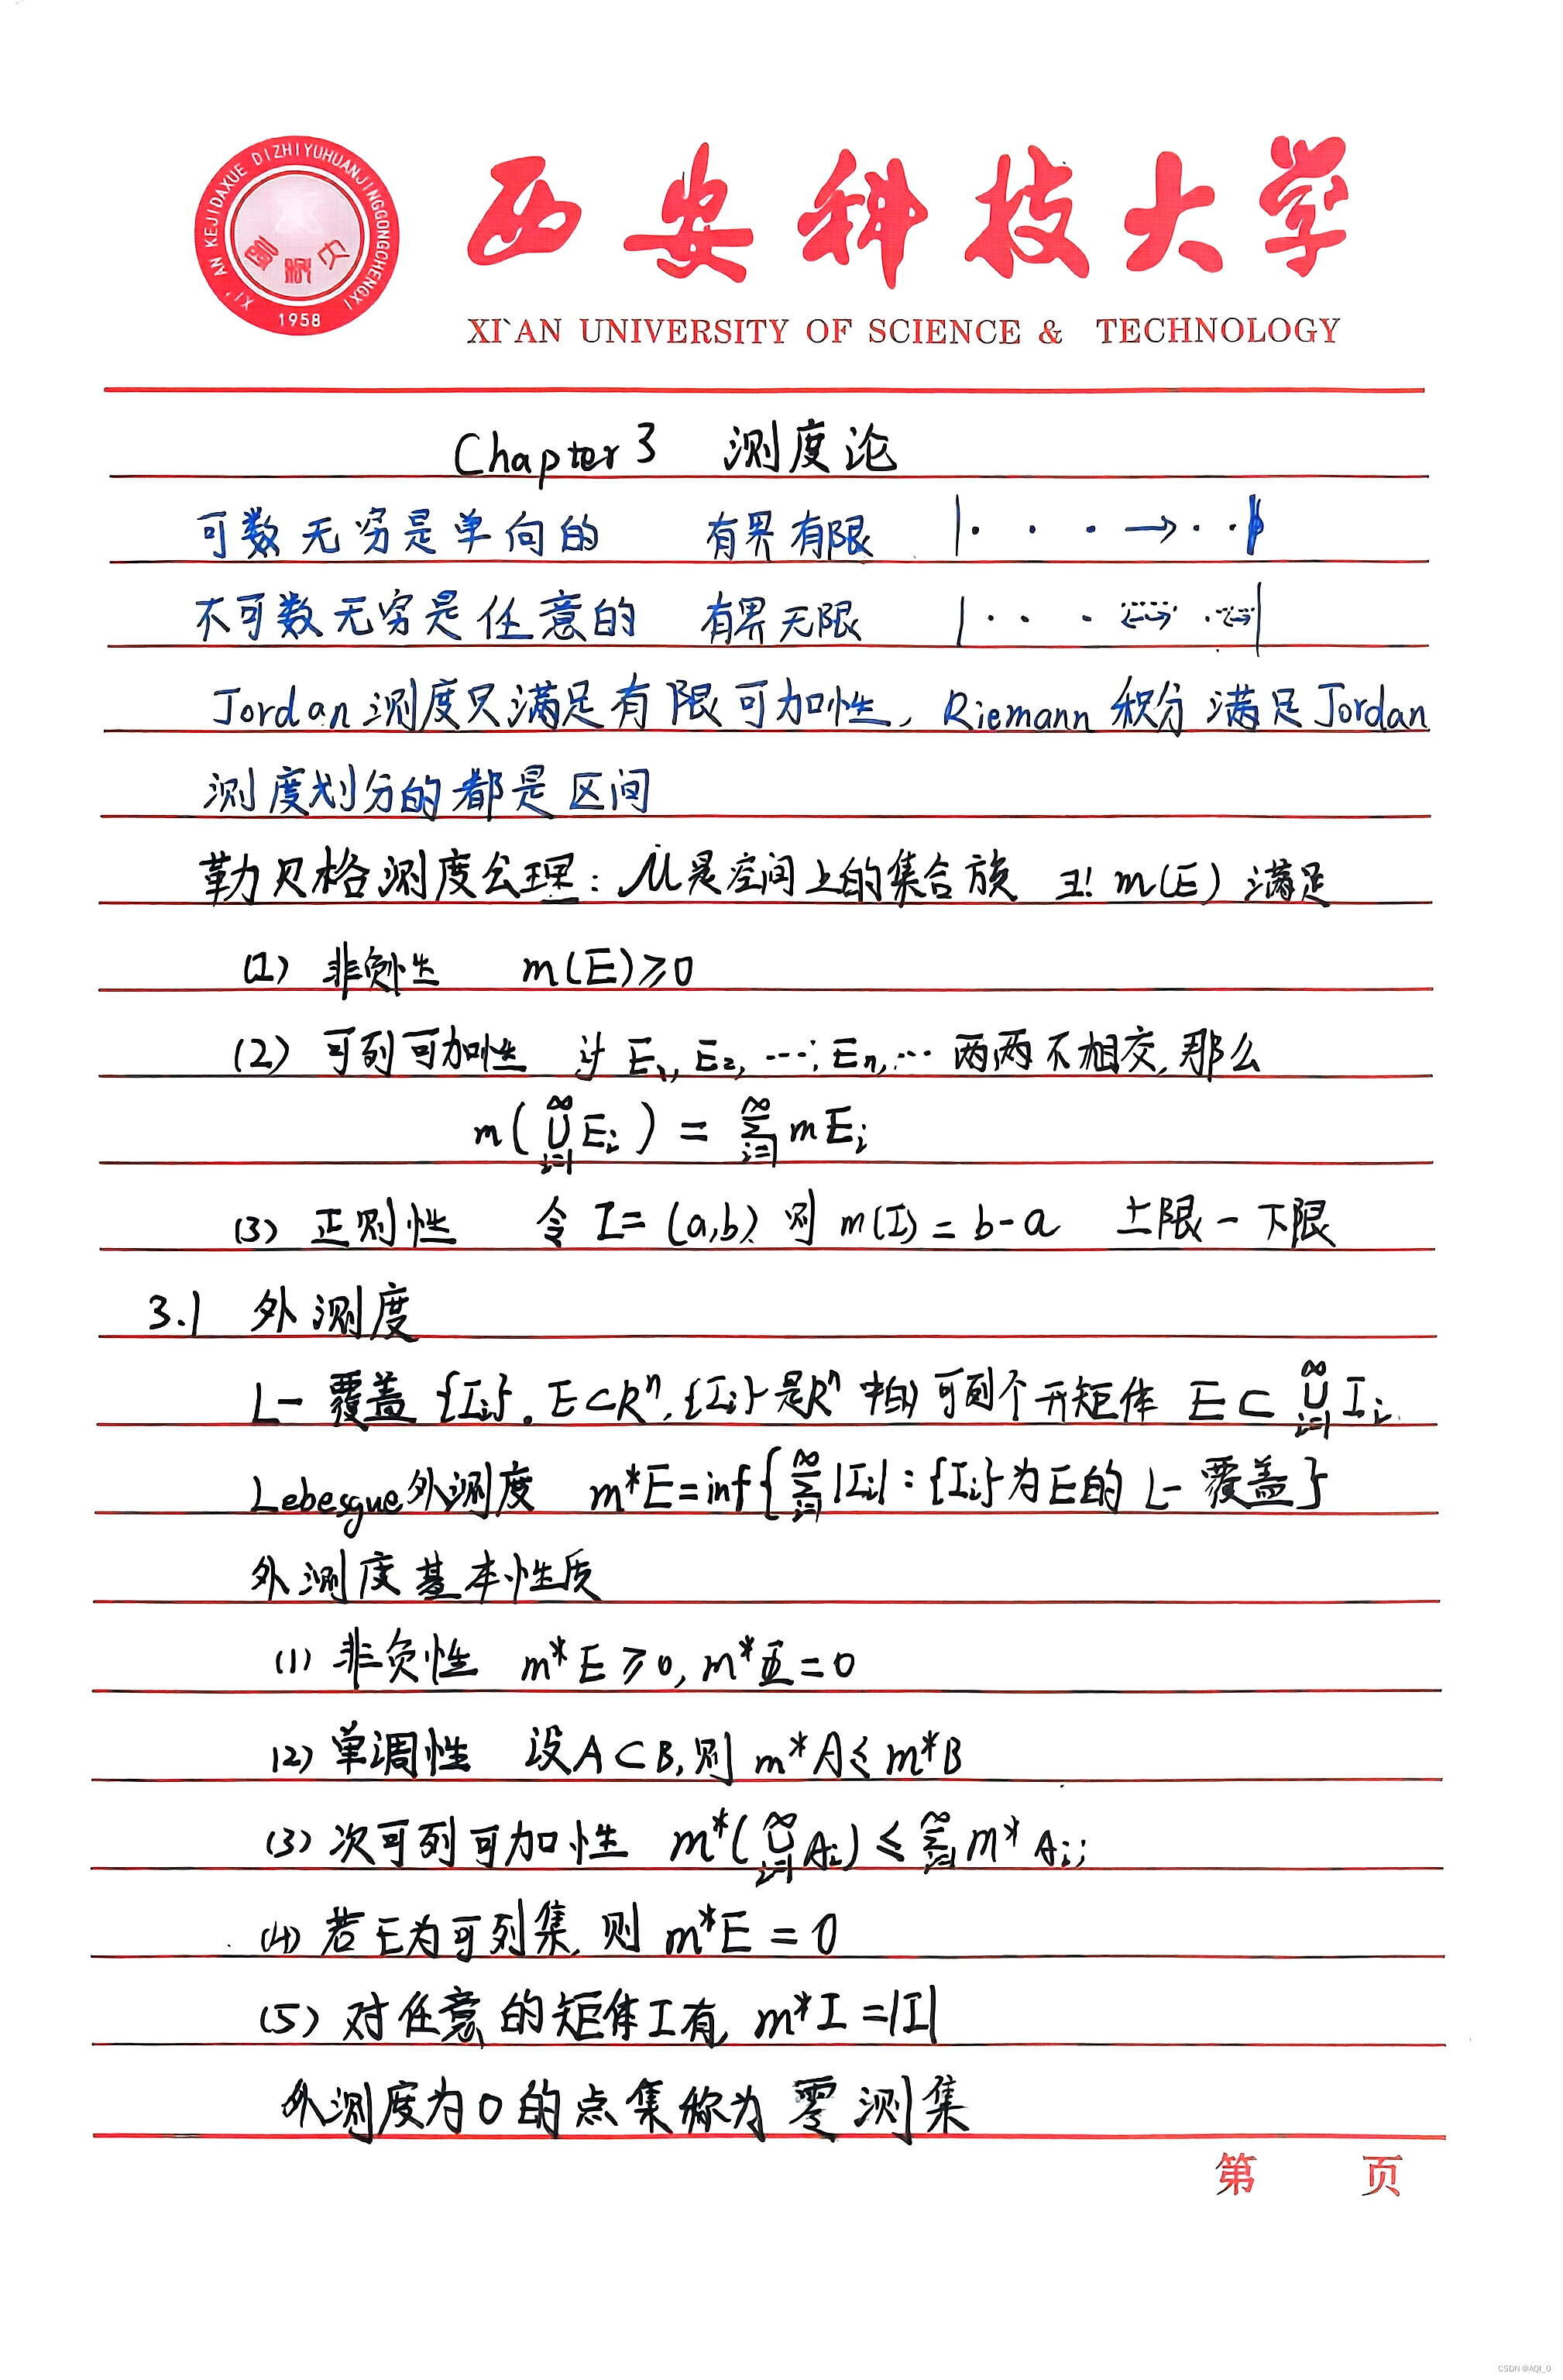 XI'AN KEJIDAXUE DIZHIYUHUANJINGGONGCHENGXI
1958
西安科技大学
XI`AN UNIVERSITY OF SCIENCE & TECHNOLOGY
Chapter 3 测度论
可数无穷是单向的 有界有限
不可数无穷是任意的 有界无限
Jordan测度只满足有限可加性, Riemann 积分满足Jordan
测度划分的都是区间
勒贝格测度公理: 𝓜是空间上的集合族 ∃! m(E) 满足
(1) 非负性 m(E)≥0
(2) 可列可加性 设 E₁, E₂, …, Eₙ, … 两两不相交, 那么
m(⋃_{i=1}^∞ Eᵢ) = ∑_{i=1}^∞ mEᵢ
(3) 正则性 令 I=(a,b) 则 m(I)=b-a 上限-下限
3.1 外测度
L-覆盖 {Iᵢ}。E⊂Rⁿ, {Iᵢ}是Rⁿ中的可列个开矩体 E⊂⋃_{i=1}^∞ Iᵢ
Lebesgue外测度 m*E=inf{∑_{i=1}^∞ |Iᵢ| : {Iᵢ}为E的L-覆盖}
外测度基本性质
(1) 非负性 m*E≥0, m*Φ=0
(2) 单调性 设A⊂B, 则 m*A≤m*B
(3) 次可列可加性 m*(⋃_{i=1}^∞ Aᵢ) ≤ ∑_{i=1}^∞ m*Aᵢ;
(4) 若E为可列集, 则 m*E=0
(5) 对任意的矩体I有, m*I=|I|
外测度为0的点集称为零测集
第 页
CSDN @AQI_0